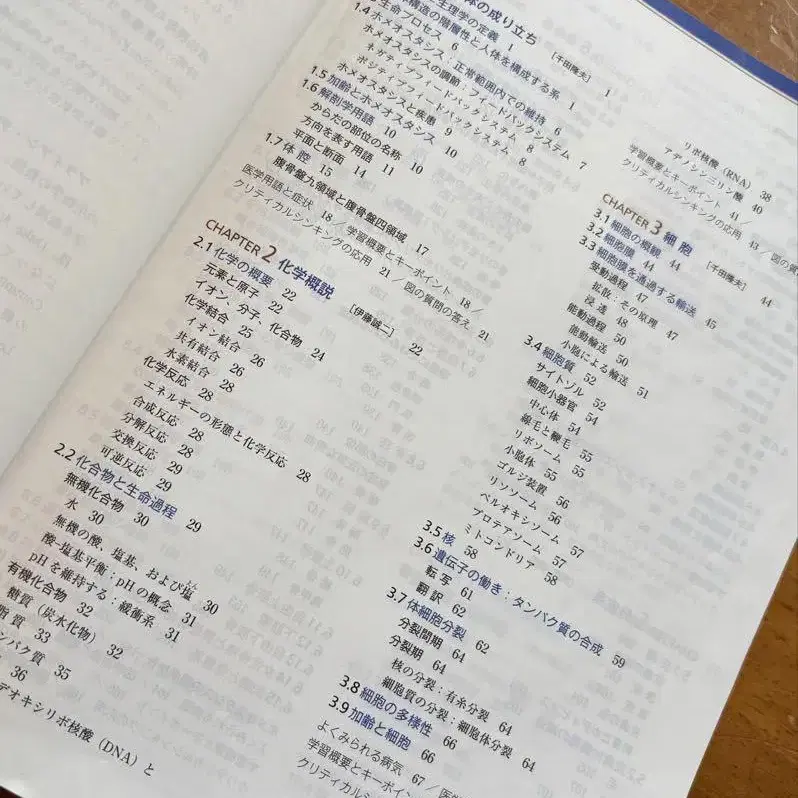 体の成り立ち [千田隆夫] 1
生理学の定義 1
構造の階層性と人体を構成する系 1
生命プロセス 6
1.4 ホメオスタシス：正常範囲内での維持 6
ホメオスタシスの調節：フィードバックシステム 7
ネガティブフィードバックシステム 8
ポジティブフィードバックシステム 8
ホメオスタシスと疾患 9
1.5 加齢とホメオスタシス 10
1.6 解剖学用語 10
からだの部位の名称 10
方向を表す用語 11
平面と断面 14
1.7 体腔 15
腹骨盤九領域と腹骨盤四領域 17
医学用語と症状 18／学習概要とキーポイント 18／
クリティカルシンキングの応用 21／図の質問の答え 21
CHAPTER 2 化学概説 [伊藤誠二] 22
2.1 化学の概要 22
元素と原子 22
イオン、分子、化合物 24
化学結合 25
イオン結合 26
共有結合 26
水素結合 28
化学反応 28
エネルギーの形態と化学反応 28
合成反応 28
分解反応 28
交換反応 29
可逆反応 29
2.2 化合物と生命過程 29
無機化合物 30
水 30
無機の酸、塩基、および塩 30
酸-塩基平衡：pHの概念 31
pHを維持する：緩衝系 31
有機化合物 32
糖質（炭水化物） 32
脂質 33
ンパク質 35
36
デオキシリボ核酸（DNA）と
リボ核酸（RNA） 38
アデノシン三リン酸 40
学習概要とキーポイント 41／
クリティカルシンキングの応用 43／図の質
CHAPTER 3 細胞 [千田隆夫] 44
3.1 細胞の概観 44
3.2 細胞膜 44
3.3 細胞膜を通過する輸送 45
受動過程 47
拡散：その原理 47
浸透 48
能動過程 50
能動輸送 50
小胞による輸送 51
3.4 細胞質 52
サイトゾル 52
細胞小器官 54
中心体 54
線毛と鞭毛 55
リボソーム 55
小胞体 55
ゴルジ装置 56
リソソーム 56
ペルオキシソーム 57
プロテアソーム 57
ミトコンドリア 58
3.5 核 58
3.6 遺伝子の働き：タンパク質の合成 59
転写 61
翻訳 62
3.7 体細胞分裂 62
分裂間期 64
分裂期 64
核の分裂：有糸分裂 64
細胞質の分裂：細胞体分裂 64
3.8 細胞の多様性 66
3.9 加齢と細胞 66
よくみられる病気 67／医学
学習概要とキーポイン
クリティカルシンキン